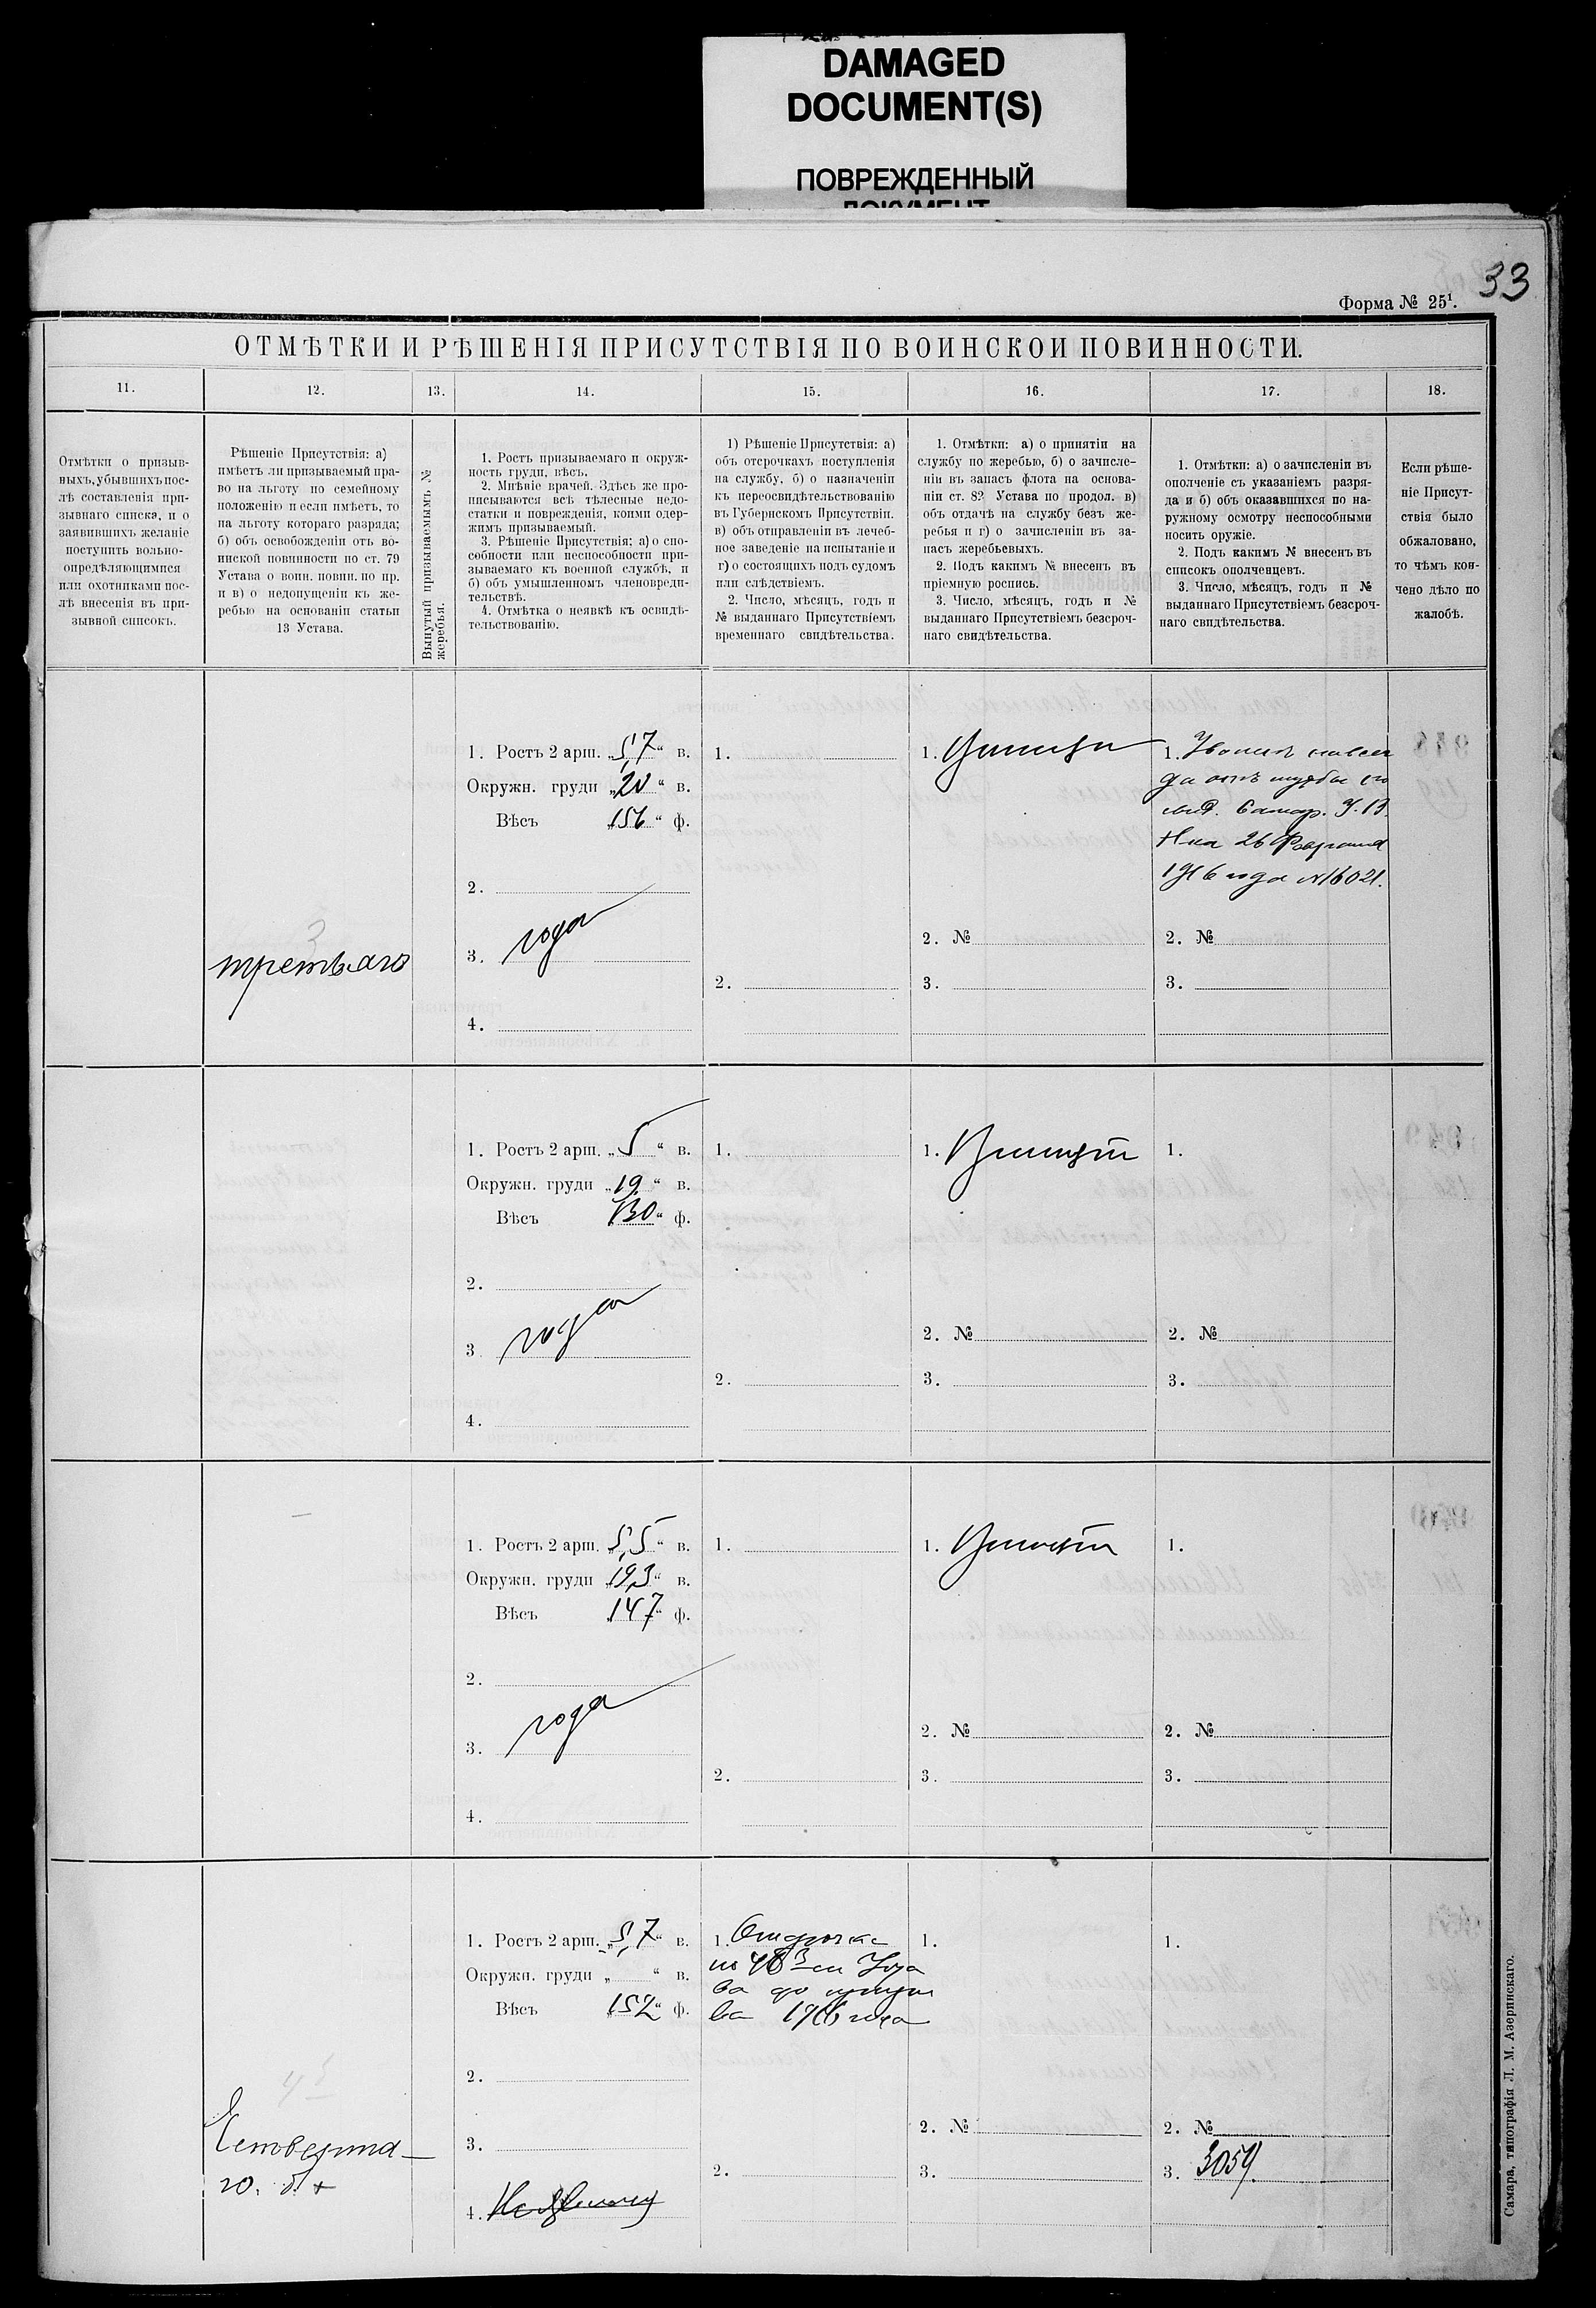 DAMAGED
DOCUMENT(S)
ПОВРЕЖДЕННЫЙ
ДОКУМЕНТ
33
Форма № 25¹.
ОТМѢТКИ И РѢШЕНІЯ ПРИСУТСТВІЯ ПО ВОИНСКОИ ПОВИННОСТИ.
11.
12.
13.
14.
15.
16.
17.
18.
Отмѣтки о призыв-
ныхъ, убывшихъ пос-
лѣ составленія при-
зывнаго списка, и о
заявившихъ желаніе
поступить вольно-
опредѣляющимися
или охотниками пос-
лѣ внесенія въ при-
зывной списокъ.
Рѣшеніе Присутствія: а)
имѣетъ ли призываемый пра-
во на льготу по семейному
положенію и если имѣетъ, то
на льготу котораго разряда;
б) объ освобожденіи отъ во-
инской повинности по ст. 79
Устава о воин. повин. по пр.
и в) о недопущеніи къ же-
ребью на основаніи статьи
13 Устава.
Вынутый призываемымъ №
жеребья.
1. Ростъ призываемаго и окруж-
ность груди, вѣсъ.
2. Мнѣніе врачей. Здѣсь же про-
писываются всѣ тѣлесные недо-
статки и поврежденія, коими одер-
жимъ призываемый.
3. Рѣшеніе Присутствія; а) о спо-
собности или неспособности при-
зываемаго къ военной службѣ, и
б) объ умышленномъ членовреди-
тельствѣ.
4. Отмѣтка о неявкѣ къ освидѣ-
тельствованію.
1) Рѣшеніе Присутствія: а)
объ отсрочкахъ поступленія
на службу, б) о назначеніи
къ переосвидѣтельствованію
въ Губернскомъ Присутствіи.
в) объ отправленіи въ лечеб-
ное заведеніе на испытаніе и
г) о состоящихъ подъ судомъ
или слѣдствіемъ.
2. Число, мѣсяцъ, годъ и
№ выданнаго Присутствіемъ
временнаго свидѣтельства.
1. Отмѣтки: а) о принятіи на
службу по жеребью, б) о зачисле-
ніи въ запасъ флота на основа-
ніи ст. 82 Устава по продол. в)
объ отдачѣ на службу безъ же-
ребья и г) о зачисленіи въ за-
пасъ жеребьевыхъ.
2. Подъ какимъ № внесенъ въ
пріемную роспись.
3. Число, мѣсяцъ, годъ и №
выданнаго Присутствіемъ безсроч-
наго свидѣтельства.
1. Отмѣтки: а) о зачисленіи въ
ополченіе съ указаніемъ разря-
да и б) объ оказавшихся по на-
ружному осмотру неспособными
носить оружіе.
2. Подъ какимъ № внесенъ въ
списокъ ополченцевъ.
3. Число, мѣсяцъ, годъ и №
выданнаго Присутствіемъ безсроч-
наго свидѣтельства.
Если рѣше-
ніе Присут-
ствія было
обжаловано,
то чѣмъ кон-
чено дѣло по
жалобѣ.
третьяго
1. Ростъ 2 арш. „5,7“ в.
Окружн. груди „20“ в.
Вѣсъ „156“ ф.
2.
3. года
4.
1.
2.
1.
2. №
3.
1. Уволенъ навсег
да отъ службы
Самар. У. В.
26 Февраля
1916 года №16021.
2. №
3.
1. Ростъ 2 арш. „5“ в.
Окружн. груди „19“ в.
Вѣсъ „130“ ф.
2.
3. года
4.
1.
2.
1. Принятъ
2. №
3.
1.
2. №
3.
1. Ростъ 2 арш. „5,5“ в.
Окружн. груди „19,3“ в.
Вѣсъ „147“ ф.
2.
3. года
4.
1.
2.
1. Принятъ
2. №
3.
1.
2. №
3.
Четверта-
го. б. +
1. Ростъ 2 арш. „5,7“ в.
Окружн. груди „ “ в.
Вѣсъ „152“ ф.
2.
3.
4.
1. Отсрочка
по 48 ст Уста
ва до призы
ва 1916 года
2.
1.
2. №
3.
1.
2. №
3. 3054.
Самара, типографія Л. М. Азеринскаго.